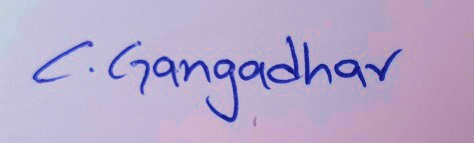 C. Gangadhar